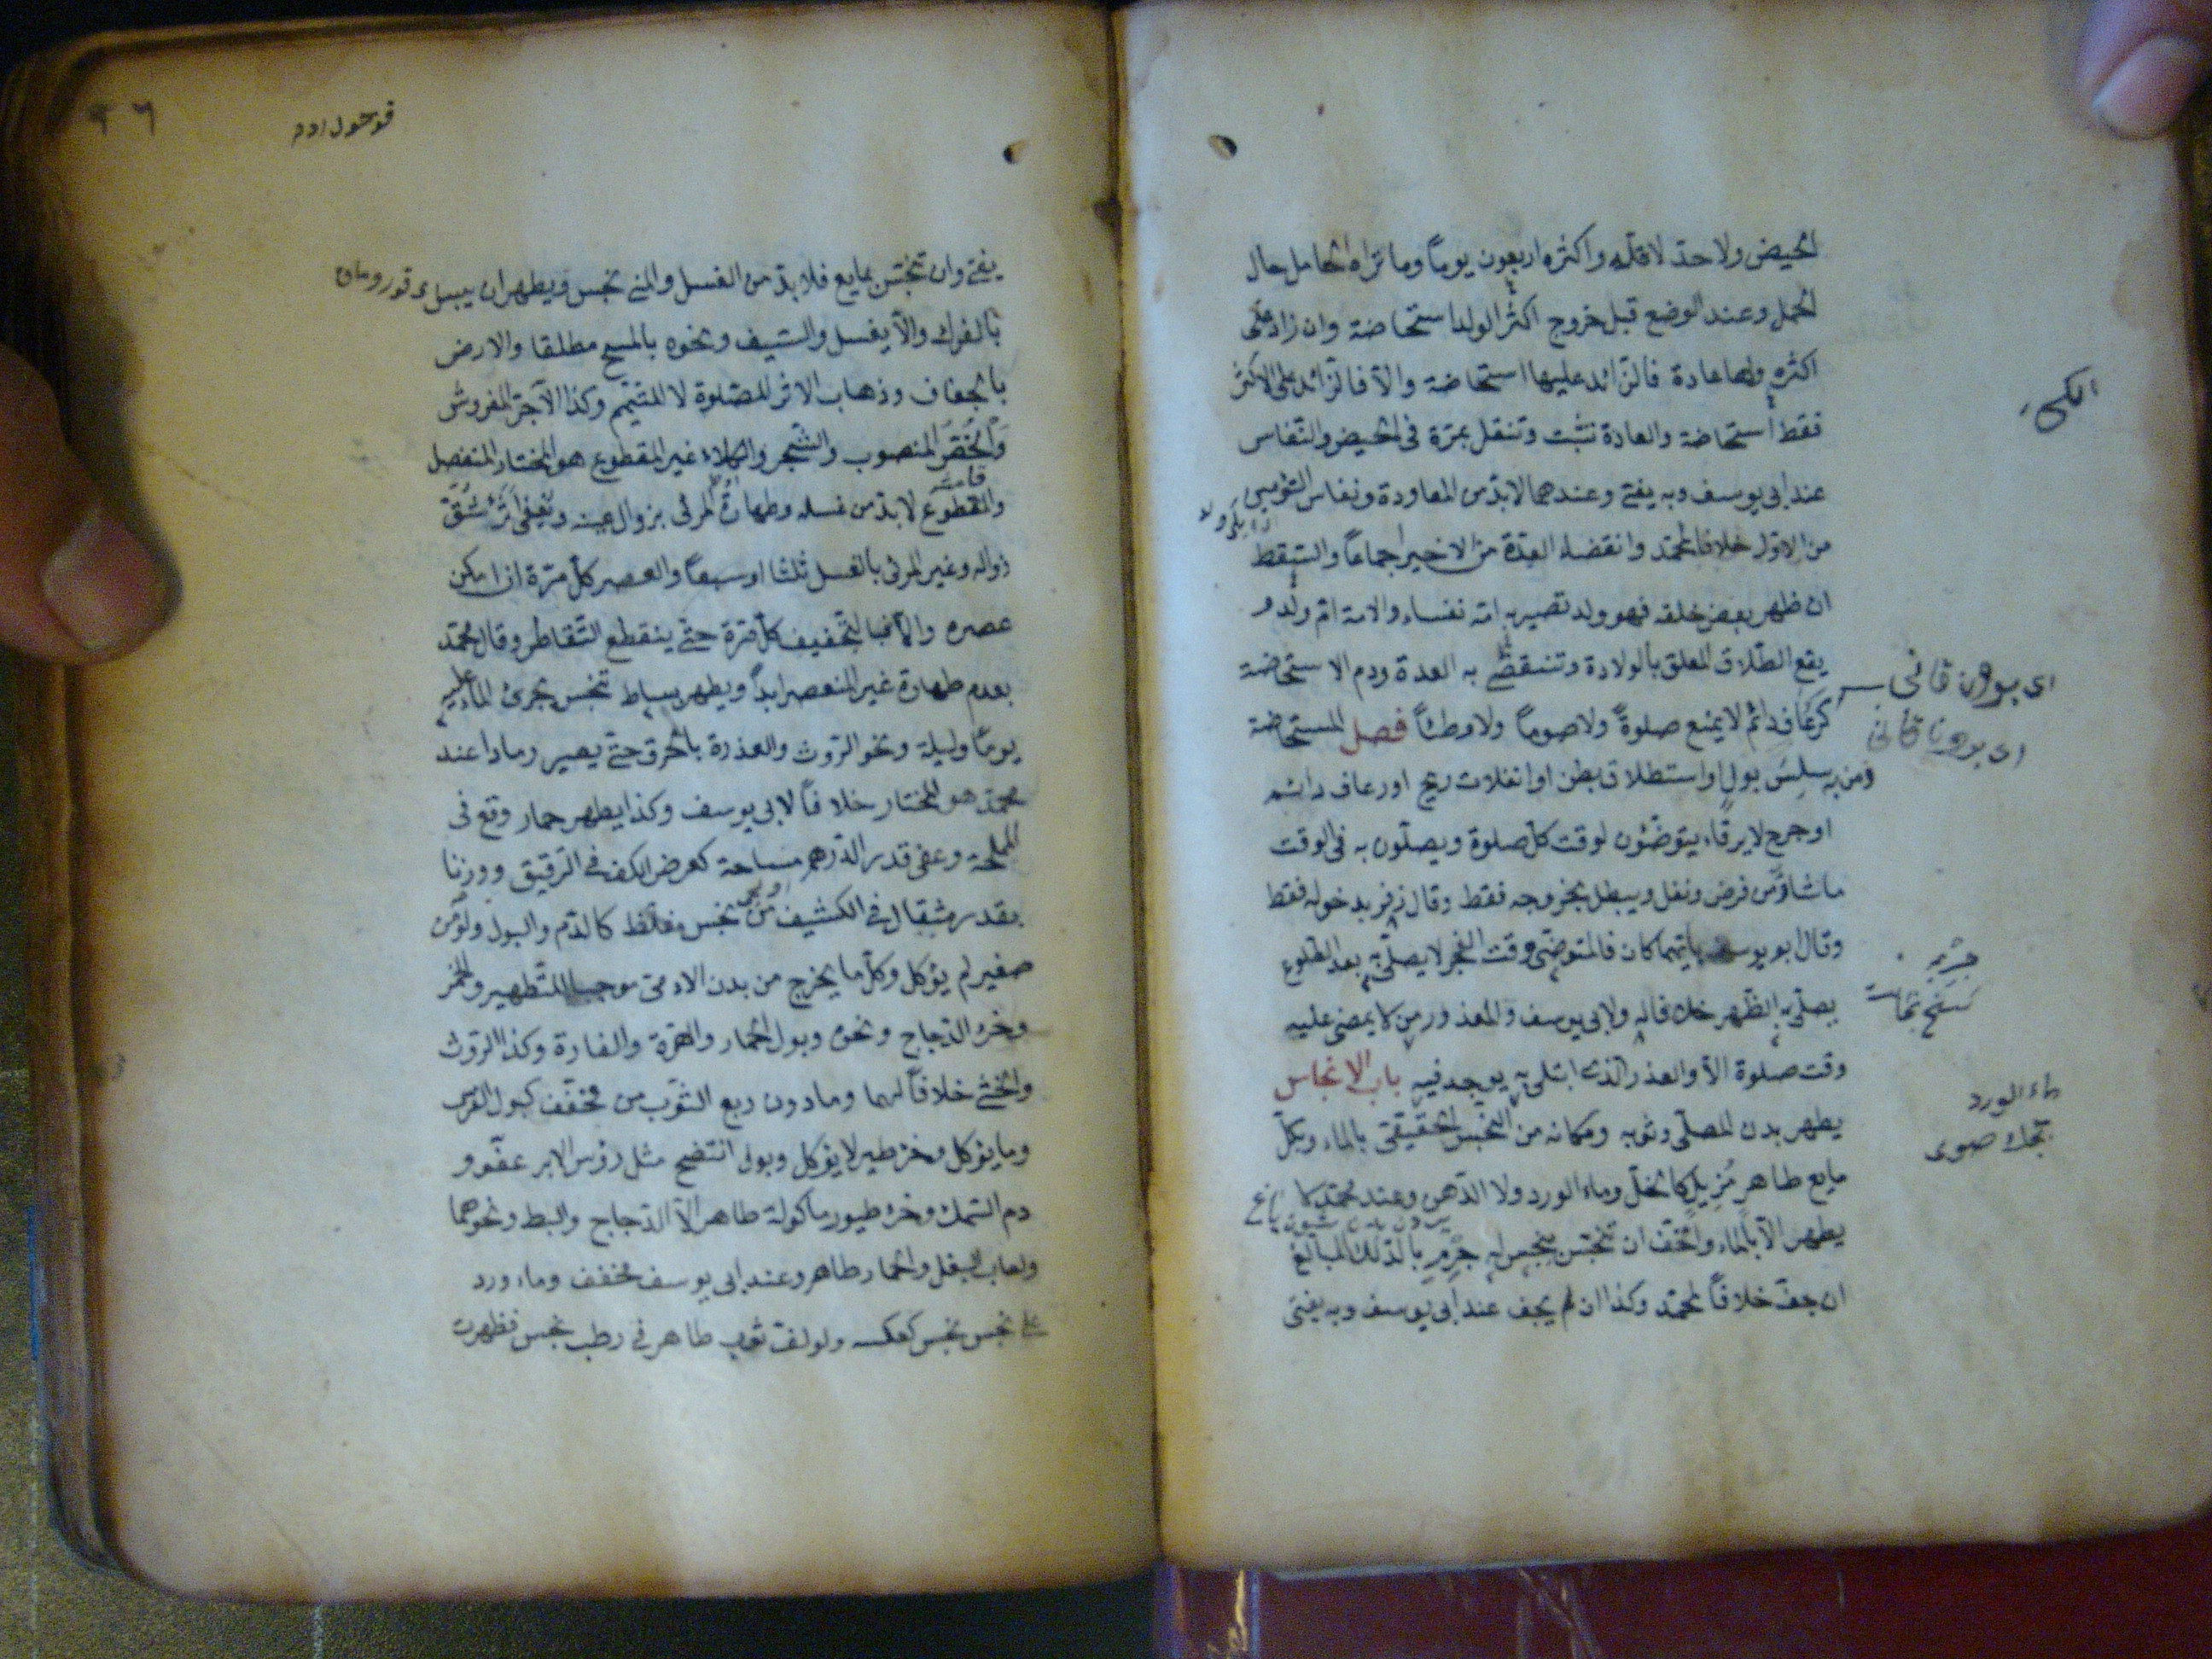 الحيض ولا حد لاقله واكثره اربعون يوماً وما تراه الحامل حال
الحمل وعند الوضع قبل خروج اكثر الولد استحاضة وان زاد على
اكثره ولها عادة فالزائد عليها استحاضة والا فالزائد على الاكثر
فقط استحاضة والعادة تثبت وتنقل بمرة فى الحيض والنفاس
عند ابى يوسف وبه يفتى وعندهما لا بد من المعاودة ونفاس التومين
من الاول خلافا لمحمد وانقضاء العدة من الاخير اجماعاً والسقط
ان ظهر بعض خلقه فهو ولد تصير به امه نفساء والامة ام ولد و
يقع الطلاق المعلق بالولادة وتنقضى به العدة ودم الاستحاضة
كرعاف دائم لا يمنع صلوةً ولا صوماً ولا وطئاً فصل المستحاضة
ومن به سلس بول او استطلاق بطن او انفلات ريح او رعاف دائم
او جرح لا يرقاء يتوضئون لوقت كل صلوة ويصلون به فى الوقت
ما شاؤا من فرض ونفل ويبطل بخروجه فقط وقال زفر بدخوله فقط
وقال ابو يوسف بايهما كان فالمتوضى وقت الفجر لا يصلى به بعد الطلوع
يصلى به الظهر خلافا له ولابى يوسف والمعذور من لا يمضى عليه
وقت صلوة الا والعذر الذى ابتلى به يوجد فيه باب الانجاس
يطهر بدن المصلى وثوبه ومكانه من النجس الحقيقى بالماء وبكل
مايع طاهر مزيل كالخل وماء الورد ولا الدهن وعند محمد لا
يطهر الا بالماء والخف ان تنجس بنجس له جرم بالدلك المبالغ
ان جف خلافاً لمحمد وكذا ان لم يجف عند ابى يوسف وبه يفتى
اى بورن قانى
اى بورن قانى
ماء الورد
صوى
٩٦
يفتى وان تنجس بمايع فلا بد من الغسل والمنى نجس ويطهر ان يبس
بالفرك والا يغسل والسيف ونحوه بالمسح مطلقا والارض
بالجفاف وذهاب الاثر للصلوة لا للتيمم وكذا الآجر المفروش
والخص المنصوب والشجر والكلاء غير المقطوع هو المختار المنفصل
والمقطوع لا بد من غسله وطهارة المرئى بزوال عينه ويعفى اثر شق
زواله وغير المرئى بالغسل ثلثا او سبعاً والعصر كل مرة ان امكن
عصره والا فبالتجفيف كل مرة حتى ينقطع التقاطر وقال محمد
بعدم طهارة غير المنعصر ابداً ويطهر بساط تنجس بجرى الماء عليه
يوماً وليلة ونحو الروث والعذرة بالحرق حتى يصير رمادا عند
محمد هو المختار خلافاً لابى يوسف وكذا يطهر حمار وقع فى
المملحة وعفى قدر الدرهم مساحة كعرض الكف فى الرقيق ووزنا
بقدر مثقال فى الكثيف من نجس مغلظ كالدم والبول ولو من
صغير لم يؤكل وكل ما يخرج من بدن الادمى موجبا للتطهير والخمر
وخرء الدجاج ونحوه وبول الحمار والهرة والفارة وكذا الروث
والخثى خلافاً لهما وما دون ربع الثوب من مخفف كبول الفرس
وما يؤكل وخرء طير لا يؤكل وبول انتضح مثل رؤس الابر عفو و
دم السمك وخرء طيور مأكولة طاهر الا الدجاج والبط ونحوهما
ولعاب البغل والحمار طاهر وعند ابى يوسف مخفف وماء ورد
على نجس نجس كعكسه ولو لف ثوب طاهر فى رطب نجس فظهرت